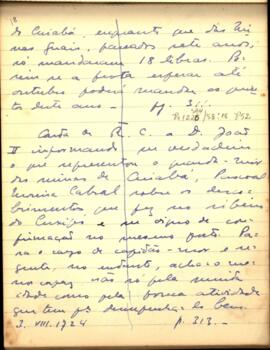 18
de Cuiabá, enquanto que das Mi
nas Gerais, passados sete anos,
só mandaram 18 libras. Po-
rém se a frota esperar até
outubro poderá mandar os quin
tos deste ano.
Carta de R. C. a D. João
V informando ser verdadeiro
o que representou o guarda-mór
das minas de Cuiabá, Pascoal
Moreira Cabral sobre os desco-
brimentos que fez no ribeiro
do Cuxipo e ser digno de con-
firmação no mesmo posto. Pa-
ra o cargo de capitão-mor e re-
gente, no entanto, acha-o me-
nos capaz não só pela muita
idade como pela pouca atividade
que tem pª desempenhá-lo bem.
3. VIII. 1724 p. 313.